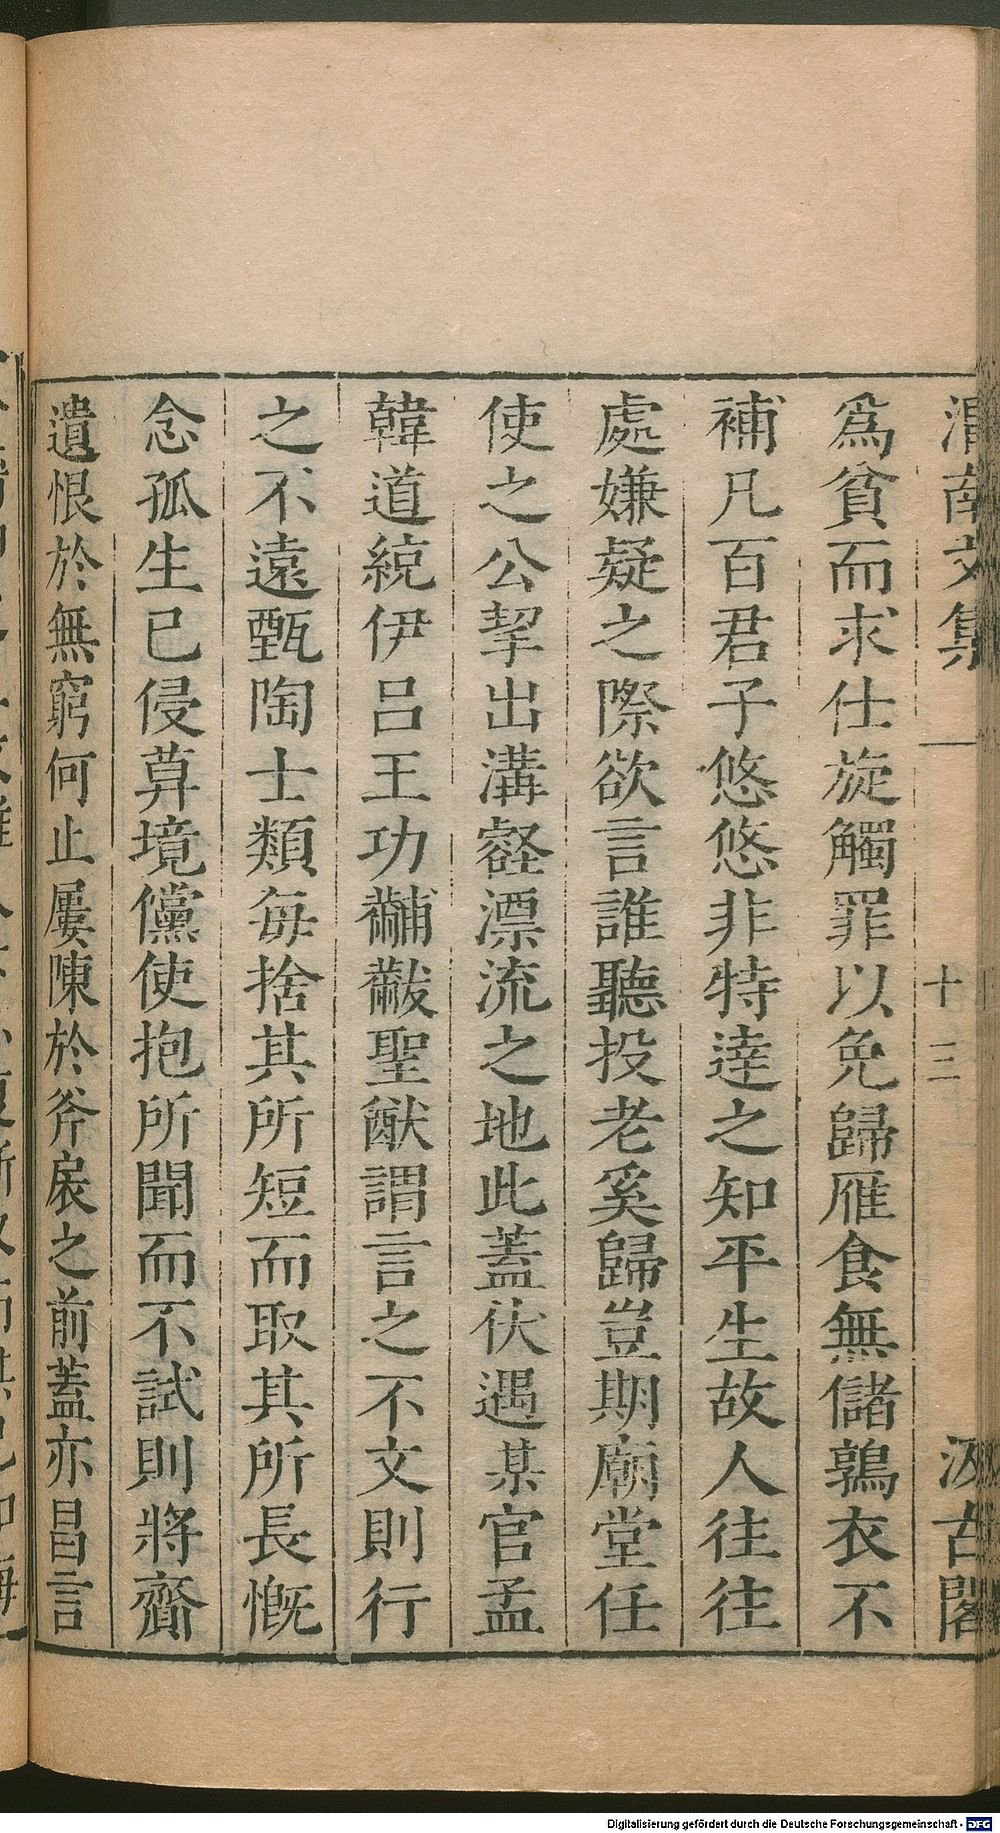 渭南文集 十三 汲古閣
爲貧而求仕旋觸罪以免歸雁食無儲鶉衣不
補凡百君子悠悠非特達之知平生故人往往
處嫌疑之際欲言誰聽投老奚歸豈期廟堂任
使之公挈出溝壑漂流之地此蓋伏遇某官孟
韓道統伊呂王功黼黻聖猷謂言之不文則行
之不遠甄陶士類每捨其所短而取其所長慨
念孤生已侵莫境儻使抱所聞而不試則將齎
遺恨於無窮何止屢陳於斧扆之前蓋亦昌言
Digitalisierung gefördert durch die Deutsche Forschungsgemeinschaft - DFG